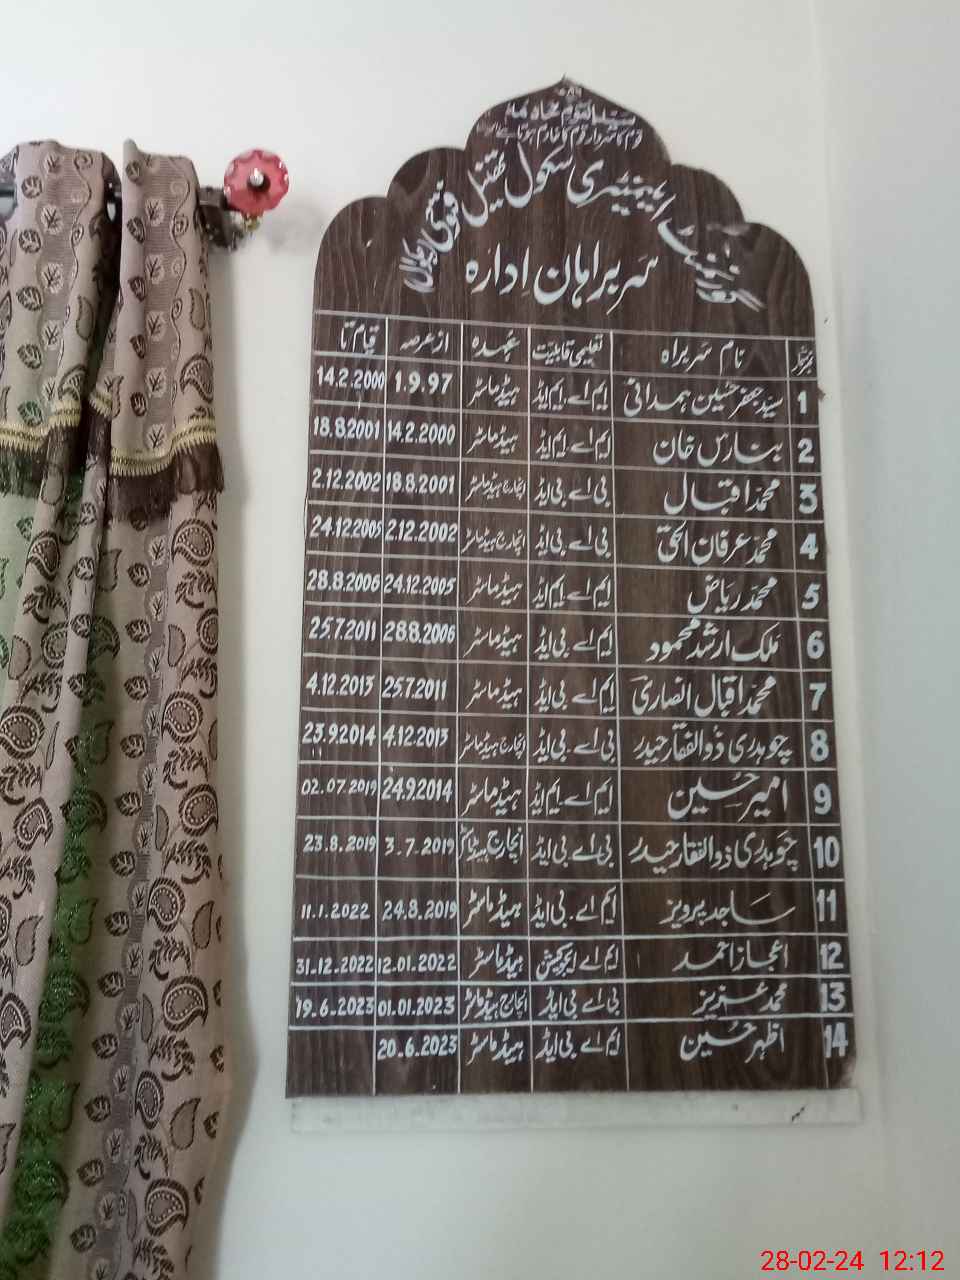 ۷۸۶
سید القوم خادمھم
قوم کا سردار قوم کا خادم ہوتا ہے
گورنمنٹ ایلیمنٹری سکول تھتیل فوجی
سربراہان ادارہ
نمبر شمار نام سربراہ تعلیمی قابلیت عہدہ از عرصہ قیام تا
1 سید جعفر حسین ہمدانی ایم اے۔ایم ایڈ ہیڈ ماسٹر 1.9.97 14.2.2000
2 بنارس خان ایم اے۔ایم ایڈ ہیڈ ماسٹر 14.2.2000 18.8.2001
3 محمد اقبال بی اے۔بی ایڈ انچارج ہیڈ ماسٹر 18.8.2001 2.12.2002
4 محمد عرفان الحق بی اے۔بی ایڈ انچارج ہیڈ ماسٹر 2.12.2002 24.12.2005
5 محمد ریاض ایم اے۔ایم ایڈ ہیڈ ماسٹر 24.12.2005 28.8.2006
6 ملک ارشد محمود ایم اے۔بی ایڈ ہیڈ ماسٹر 28.8.2006 25.7.2011
7 محمد اقبال انصاری ایم اے۔بی ایڈ ہیڈ ماسٹر 25.7.2011 4.12.2013
8 چوہدری ذوالفقار حیدر بی اے۔بی ایڈ انچارج ہیڈ ماسٹر 4.12.2013 23.9.2014
9 امیر حسین ایم اے۔ایم ایڈ ہیڈ ماسٹر 24.9.2014 02.07.2019
10 چوہدری ذوالفقار حیدر بی اے بی ایڈ انچارج ہیڈ ماسٹر 3.7.2019 23.8.2019
11 ساجد پرویز ایم اے۔بی ایڈ ہیڈ ماسٹر 24.8.2019 11.1.2022
12 اعجاز احمد ایم اے ایجوکیشن ہیڈ ماسٹر 12.01.2022 31.12.2022
13 محمد عزیز بی اے بی ایڈ انچارج ہیڈ ماسٹر 01.01.2023 19.6.2023
14 اظہر حسین ایم اے بی ایڈ ہیڈ ماسٹر 20.6.2023
28-02-24 12:12